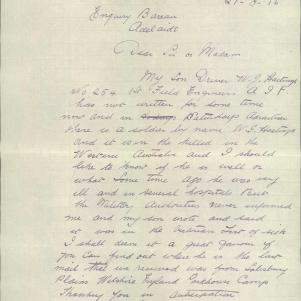 21-8-16
Enquiry Bureau
Adelaide
Dear Sir or Madam
My Son Driver W. J. Hastings
No 254 1st Field Engineers A I F
has not written for some time
now and in Saturdays
there is a soldier by name W. J. Hastings
and it is in the killed in the
Western Australia and I should
like to know if he is well or
what some time ago he was very
ill and in several hospitals But
the Military Authorities never informed
me and my son wrote and said
it was in the list of sick
I shall deem it a great favour if
you can find out where he is the last
mail that we received was from Salisbury
Plains Wiltshire England Parkhouse Camp
Thanking You in Anticipation